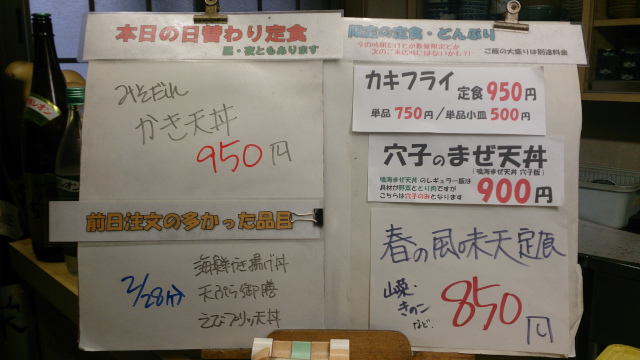 本日の日替わり定食
昼・夜ともあります
みそだれ
かき天丼
950円
前日注文の多かった品目
2/28分
海鮮かき揚げ丼
天ぷら御膳
えびプリッ天丼
限定の定食・どんぶり
今の時期だけだが数量限定とか
次のご来店時にはないかも?!
ご飯の大盛りは別途料金
カキフライ 定食950円
単品750円/単品小皿500円
穴子のまぜ天丼
(鳴海まぜ天丼 穴子版)
鳴海まぜ天丼 のレギュラー版は
具材が野菜ととり肉ですが
こちらは穴子のみとなります
900円
春の風味天定食
山菜・
きのこ
など.
850円